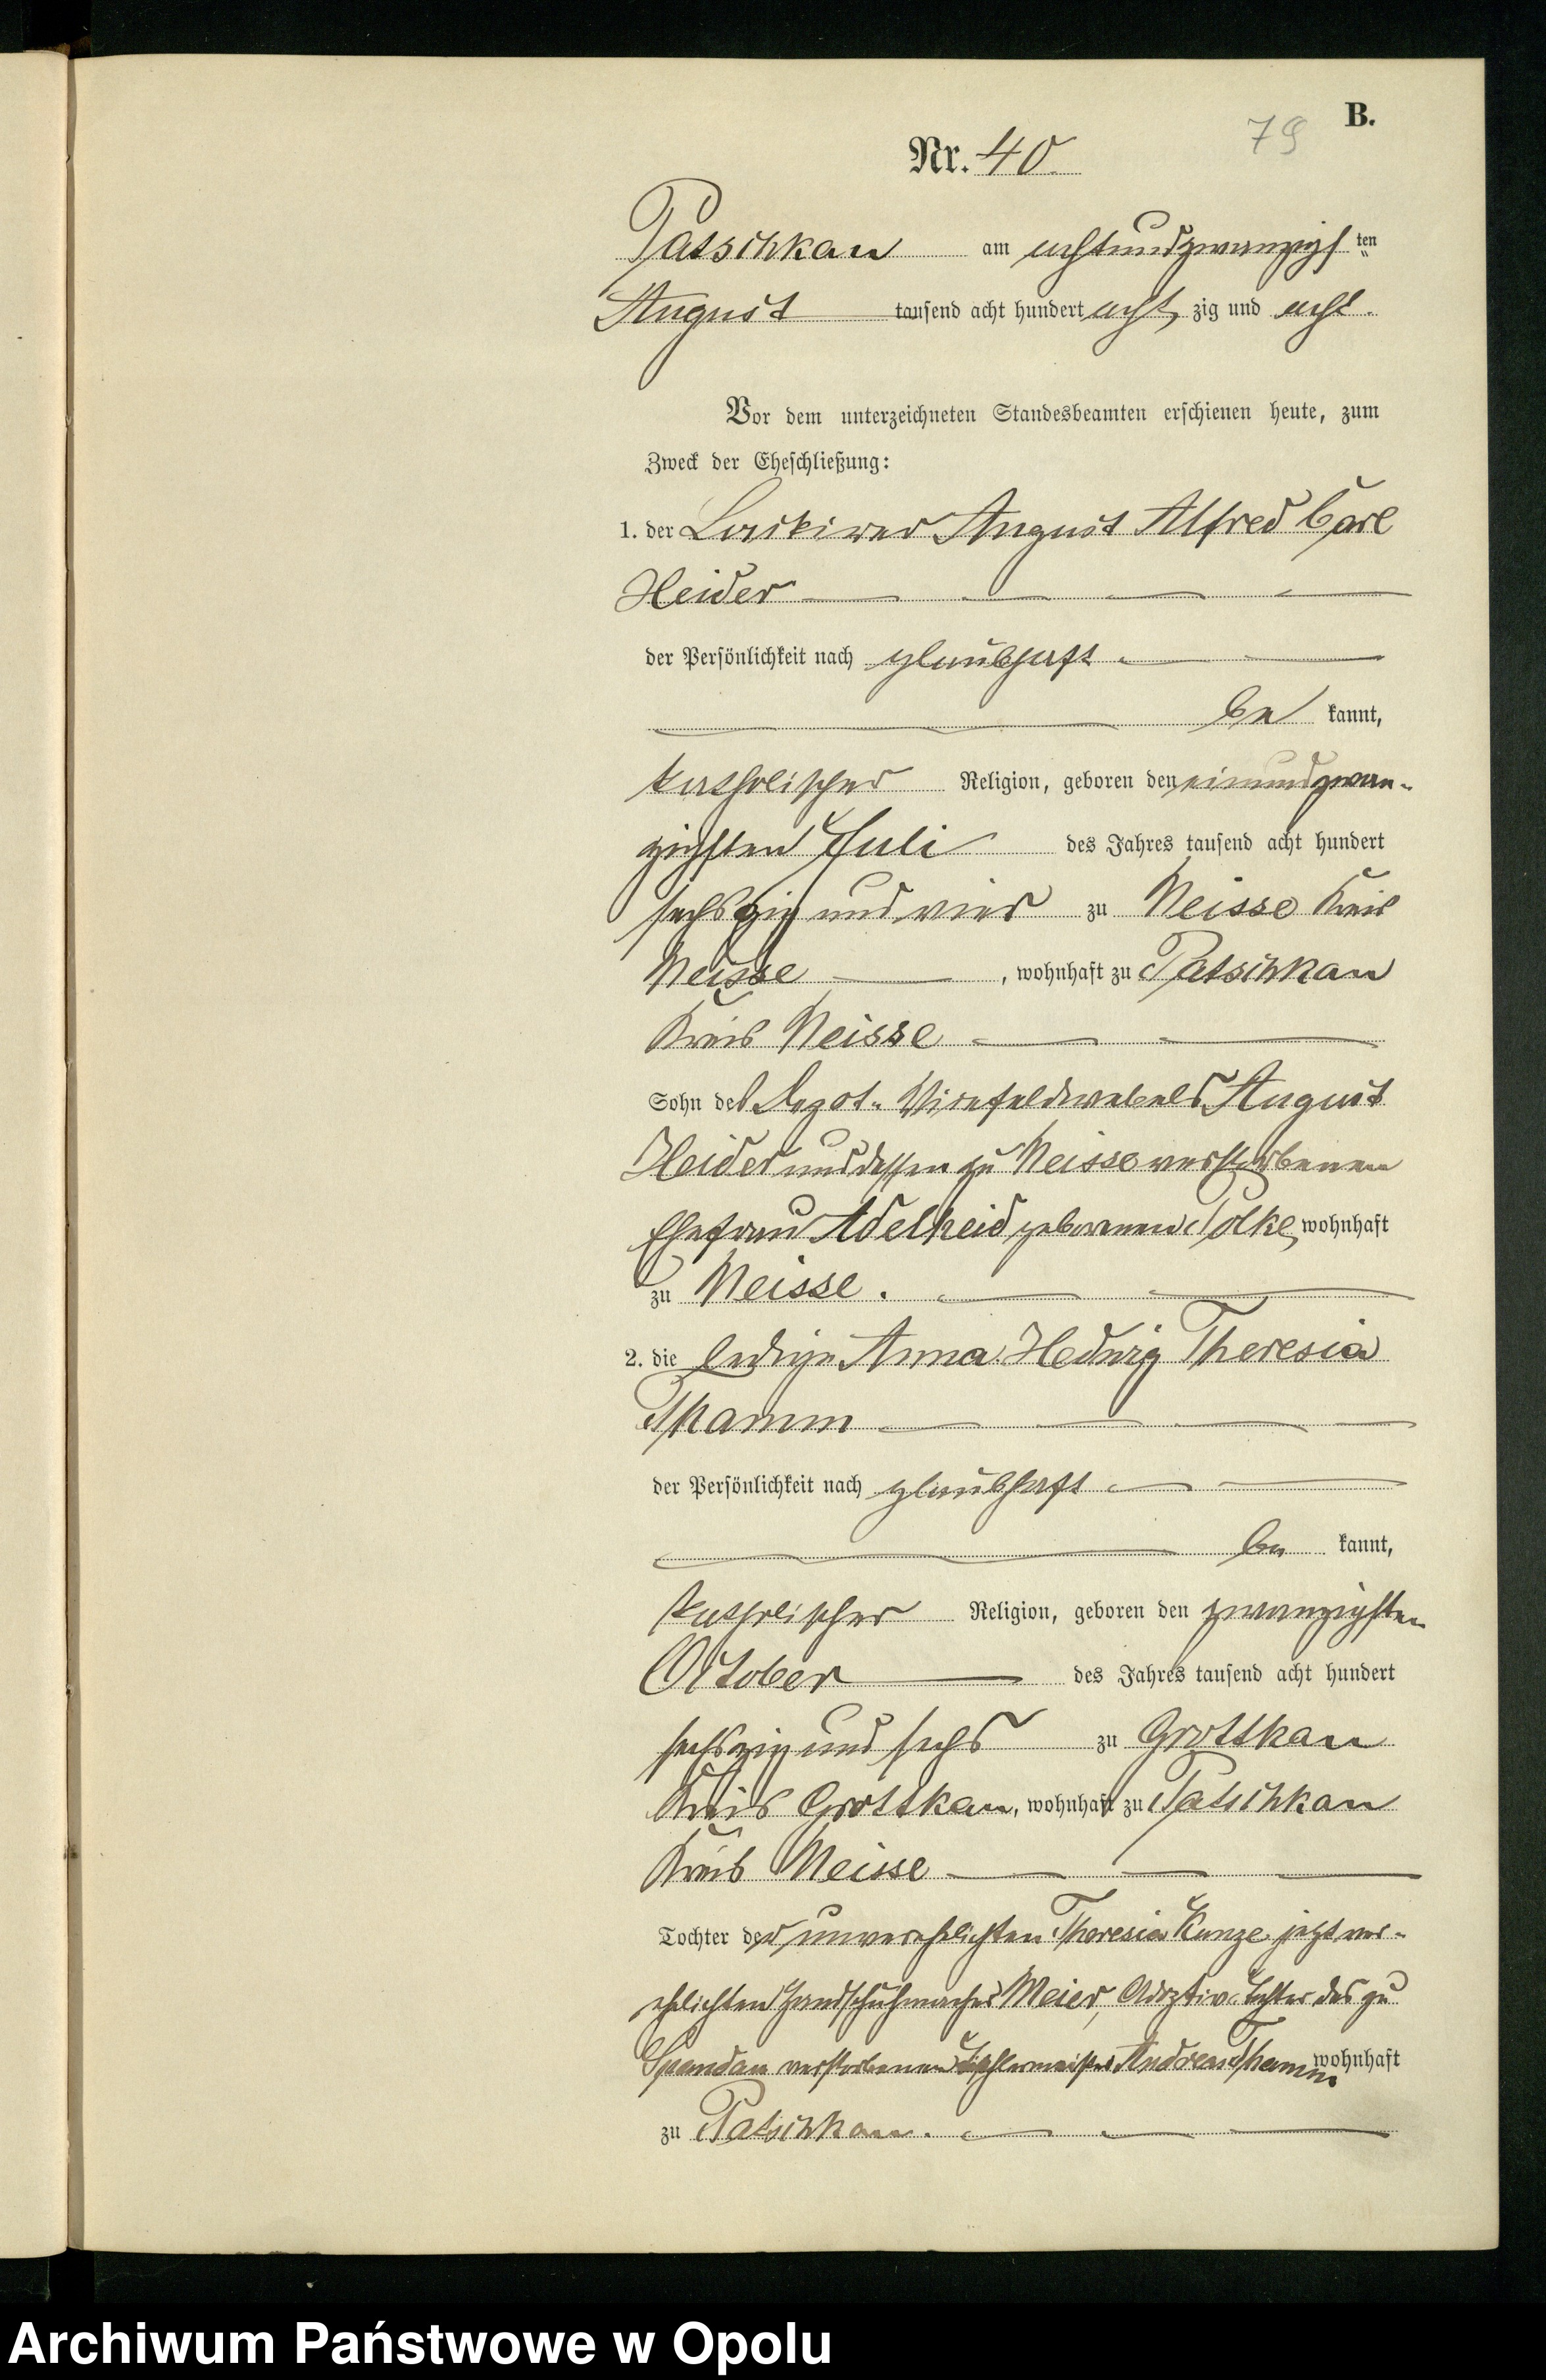 B.
79
Nr. 40.
Patschkau am achtundzwanzigsten
August tausend acht hundert acht zig und acht.
Vor dem unterzeichneten Standesbeamten erschienen heute, zum
Zweck der Eheschließung:
1. der Lackirer August Alfred Carl
Heider
der Persönlichkeit nach glaubhaft
be kannt,
katholischer Religion, geboren den einundzwan-
zigsten Juli des Jahres tausend acht hundert
sechszig und vier zu Neisse Kreis
Neisse, wohnhaft zu Patschkau
Kreis Neisse
Sohn des Depot-Vicefeldwebels August
Heider und dessen zu Neisse verstorbenen
Ehefrau Adelheid geborenen Polke, wohnhaft
zu Neisse.
2. die ledige Anna Hedwig Theresia
Thamm
der Persönlichkeit nach glaubhaft
be kannt,
katholischer Religion, geboren den zwanzigsten
October des Jahres tausend acht hundert
sechszig und sechs zu Grottkau
Kreis Grottkau, wohnhaft zu Patschkau
Kreis Neisse
Tochter der unverehelichten Theresia Kunze jetzt ver-
ehelichten Handschuhmacher Meier, Adoptiv-Tochter des zu
Spandau verstorbenen Tischlermeisters Andreas Thamm wohnhaft
zu Patschkau.
Archiwum Państwowe w Opolu